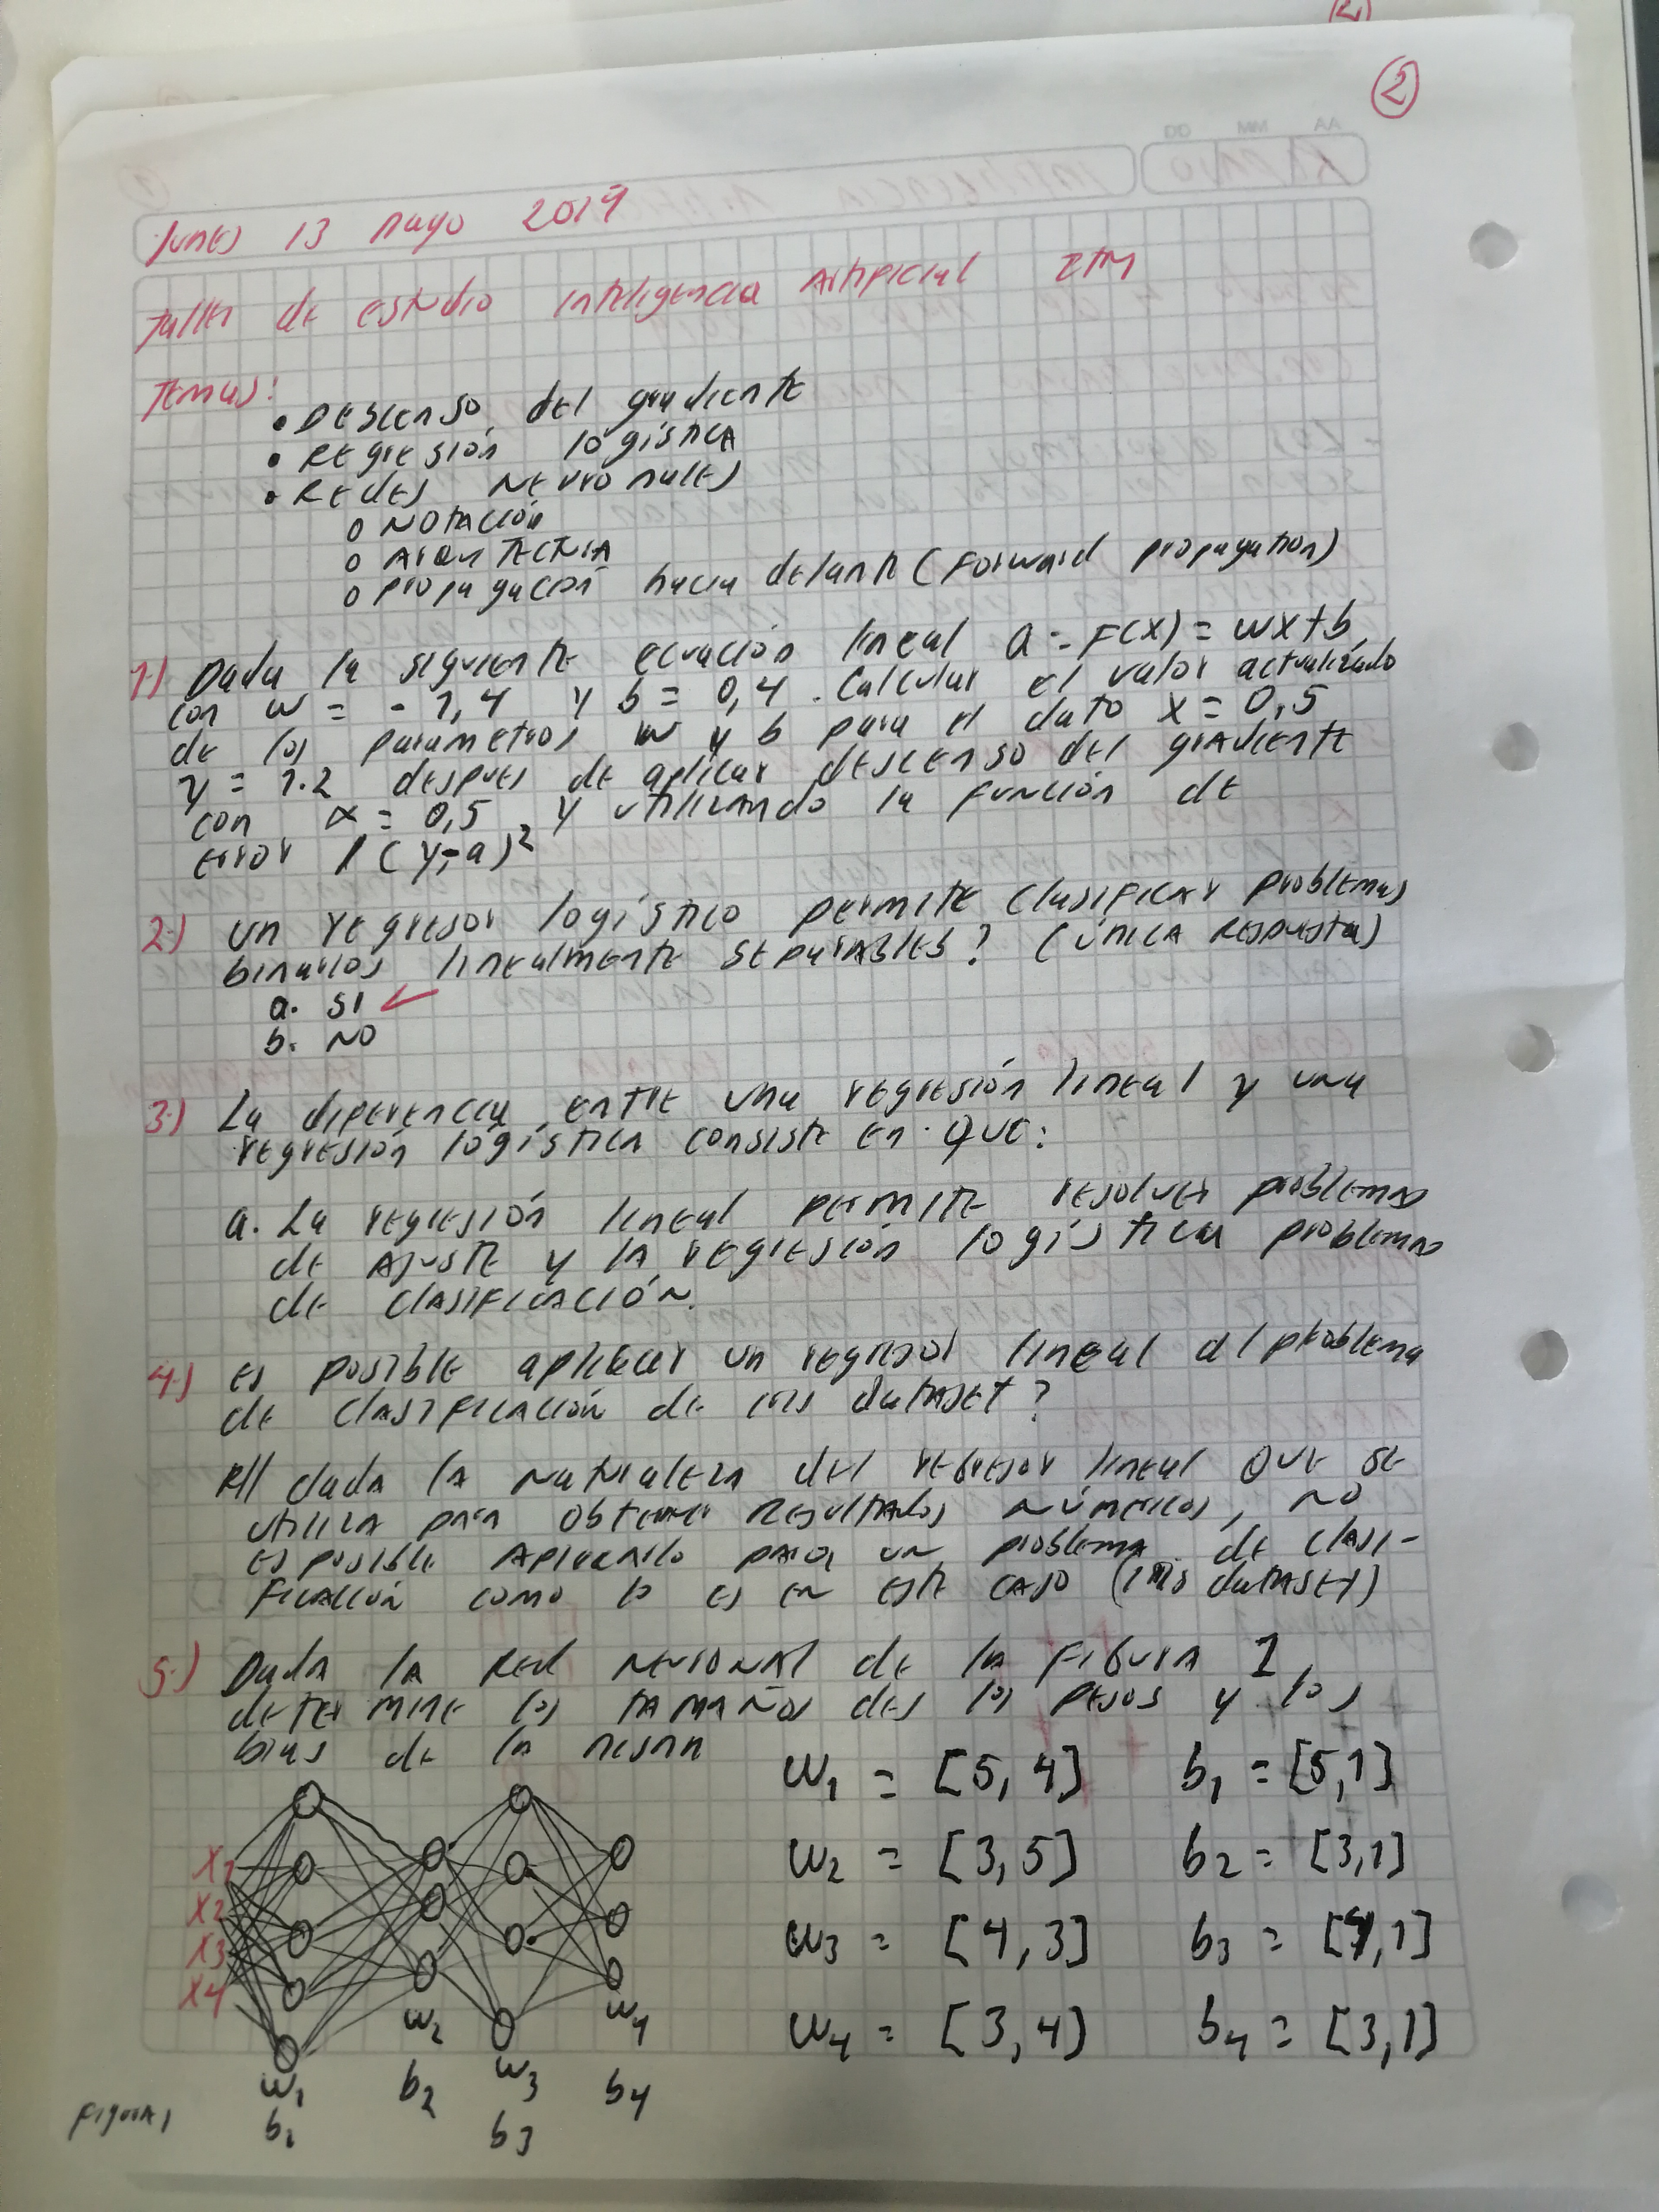 2
DD MM AA
lunes 13 mayo 2019
Taller de estudio inteligencia Artificial ITM
Temas:
• Descenso del gradiente
• Regresión logística
• Redes neuronales
o Notación
o Arquitectura
o propagación hacia delante (forward propagation)
1.) Dada la siguiente ecuación lineal a = F(x) = wx+b
con w = -1,4 y b = 0,4. Calcular el valor actualizado
de los parametros w y b para el dato x = 0,5
y = 1.2 despues de aplicar descenso del gradiente
con α = 0,5 y utilizando la función de
error (y-a)²
2.) un regresor logístico permite clasificar problemas
binarios linealmente separables? (única respuesta)
a. si ✓
b. no
3.) La diferencia entre una regresión lineal y una
regresión logística consiste en que:
a. La regresión lineal permite resolver problemas
de ajuste y la regresión logística problemas
de clasificación.
4.) es posible aplicar un regresor lineal al problema
de clasificación de iris dataset?
R// dada la naturaleza del regresor lineal que se
utiliza para obtener resultados númericos, no
es posible aplicarlo para un problema de clasi-
ficación como lo es en este caso (iris dataset)
5.) Dada la red neuronal de la figura 1,
determine los tamaños des los pesos y los
bias de la misma
w1 = [5,4] b1 = [5,1]
w2 = [3,5] b2 = [3,1]
w3 = [4,3] b3 = [4,1]
w4 = [3,4] b4 = [3,1]
x1
x2
x3
x4
w1
b1
w2
b2
w3
b3
w4
b4
Figura 1